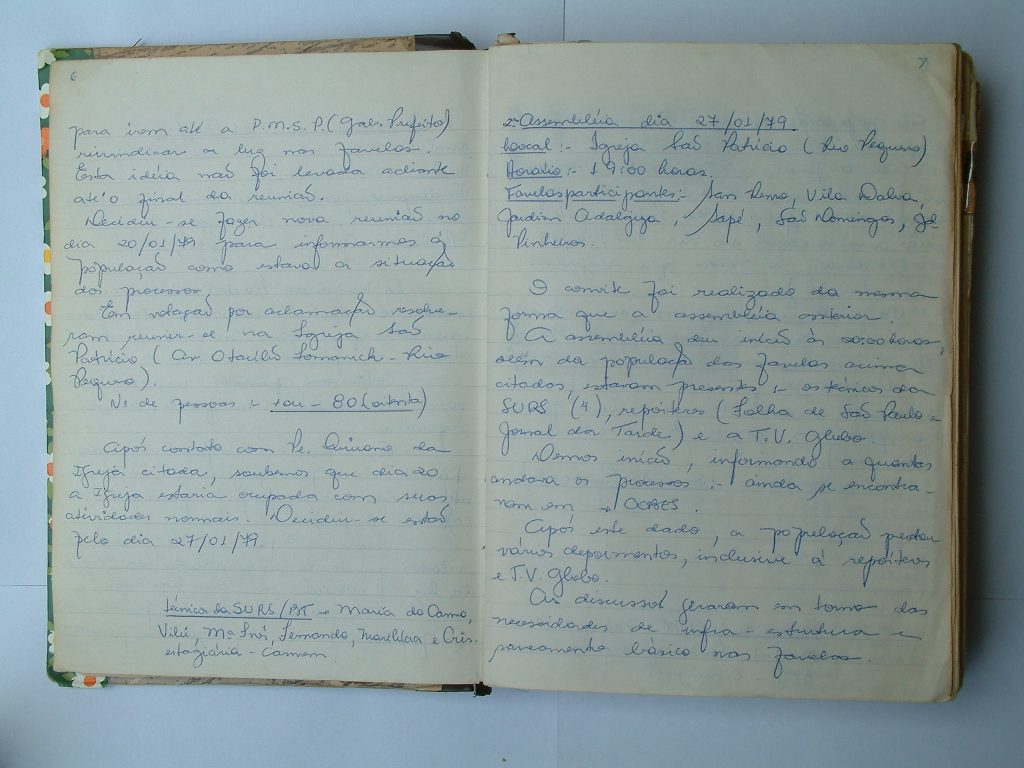 6
para irem até a P.M.S.P. (Gab. Prefeito)
reivindicar a luz nas favelas.
Esta idéia não foi levada adiante
até o final da reunião.
Decidiu-se fazer nova reunião no
dia 20/01/79 para informarmos à
população como estava a situação
dos processos.
Em votação por aclamação resolve-
ram reunir-se na Igreja São
Patrício (Av. Otacílio Tomanick - Rio
Pequeno).
Nº de pessoas :- + ou - 80 (oitenta)
Após contato com Pe. da
Igreja citada, soubemos que dia 20
a Igreja estaria ocupada com suas
atividades normais. Decidiu-se então
pelo dia 27/01/79.
técnicos da SURS/PJT - Maria do Carmo,
Vilú, Mª Inês, Fernando, Marilda e Cris.
estagiária - Carmem
7
2ª Assembléia dia 27/01/79.
Local :- Igreja São Patrício (Rio Pequeno)
Horário :- 19:00 horas.
Favelas participantes :- San Remo, Vila Dalva,
Jardim Adalgiza, Sapé, São Domingos, Jd.
Pinheiros.
O convite foi realizado da mesma
forma que a assembléia anterior.
A assembléia deu início às 20:00 horas,
além da população das favelas acima
citadas, estavam presentes :- os técnicos da
SURS (4), repórteres (Folha de São Paulo e
Jornal da Tarde) e a T.V. Globo.
Demos início, informando a quantas
andava os processos :- ainda se encontra-
vam em → COBES.
Após este dado, a população prestou
vários depoimentos, inclusive à repórteres
e T.V. Globo.
As discussões giraram em torno das
necessidades de infra-estrutura e
saneamento básico nas favelas.